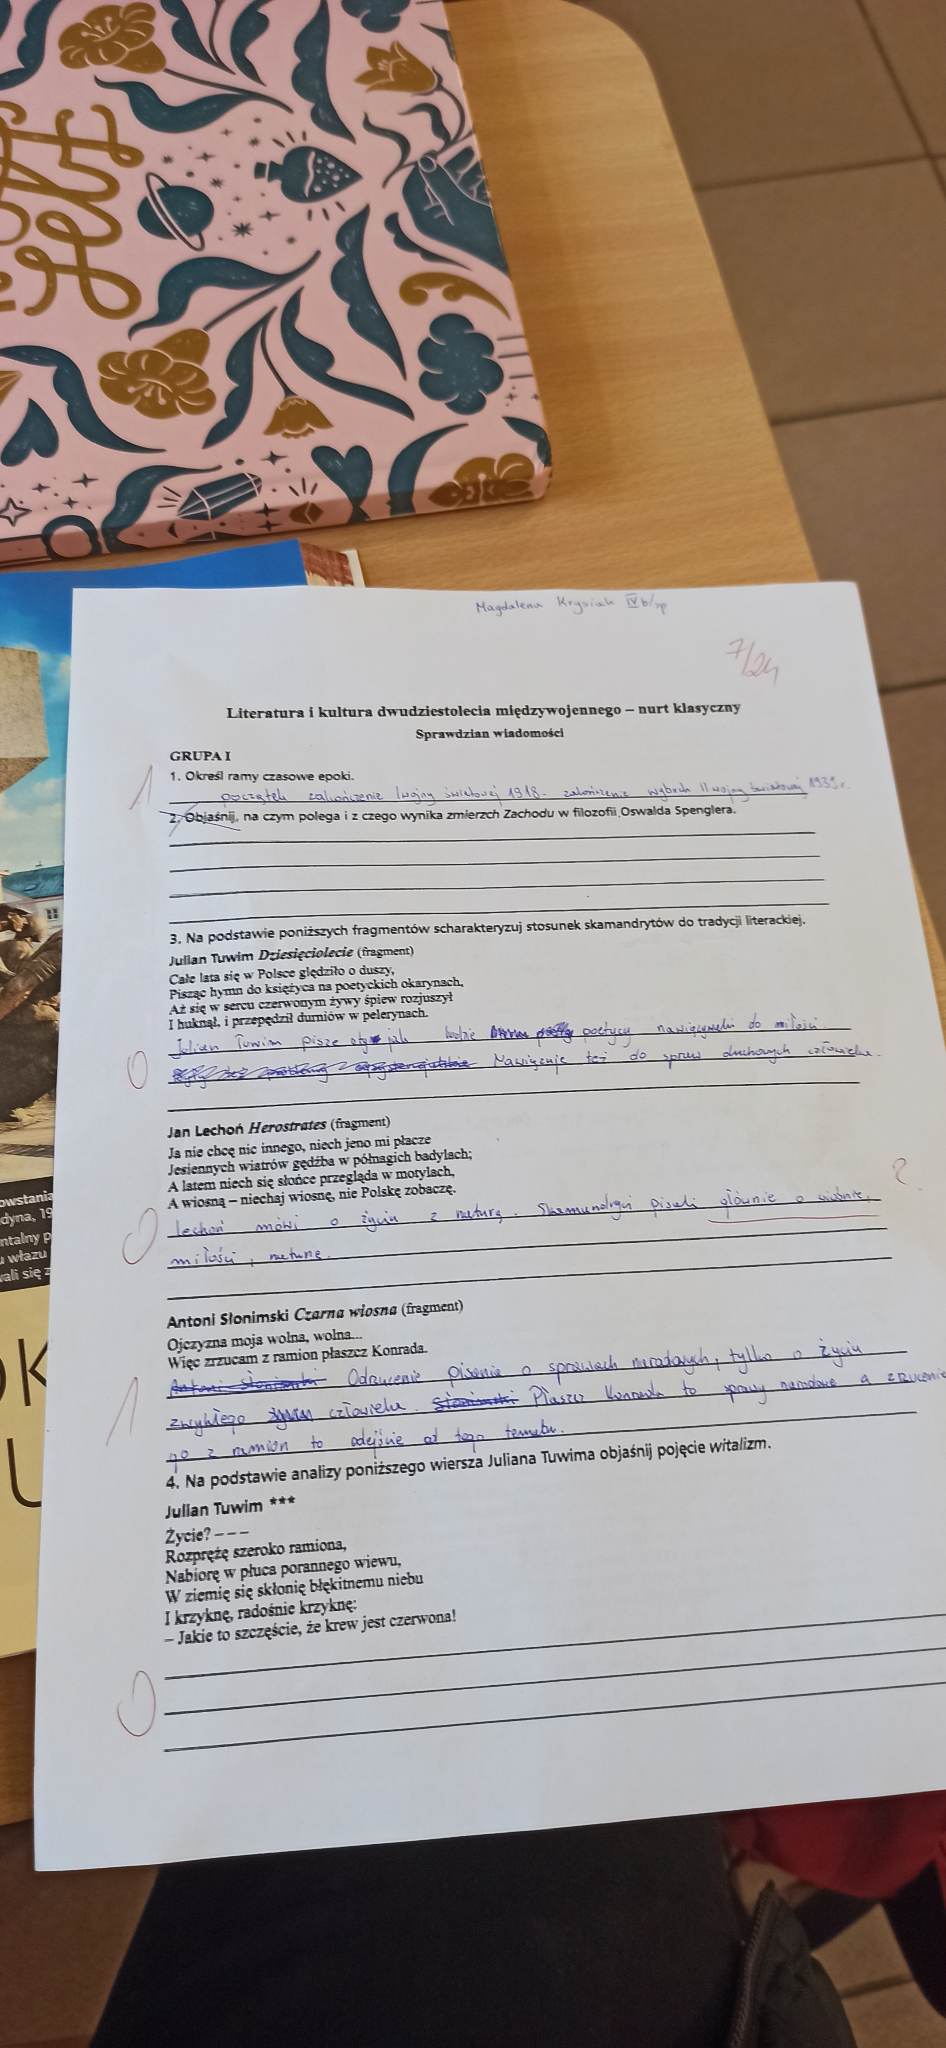 Magdalena Krysiak IV b/sp
7/24
Literatura i kultura dwudziestolecia międzywojennego – nurt klasyczny
Sprawdzian wiadomości
GRUPA I
1. Określ ramy czasowe epoki.
1 początek zakończenie I wojny światowej 1918. zakończenie wybuch II wojny światowej 1939r.
2. Objaśnij, na czym polega i z czego wynika zmierzch Zachodu w filozofii Oswalda Spenglera.
3. Na podstawie poniższych fragmentów scharakteryzuj stosunek skamandrytów do tradycji literackiej.
Julian Tuwim Dziesięciolecie (fragment)
Całe lata się w Polsce ględziło o duszy,
Pisząc hymn do księżyca na poetyckich okarynach,
Aż się w sercu czerwonym żywy śpiew rozjuszył
I huknął, i przepędził durniów w pelerynach.
Julian Tuwim pisze o jak poetycy nawiązywali do miłości.
0 Nawiązuje też do spraw duchowych człowieka.
Jan Lechoń Herostrates (fragment)
Ja nie chcę nic innego, niech jeno mi płacze
Jesiennych wiatrów gędźba w półnagich badylach;
A latem niech się słońce przegląda w motylach,
A wiosną – niechaj wiosnę, nie Polskę zobaczę.
0 Lechoń mówi o życiu z naturą. Skamandryci pisali głównie o wiośnie, ?
miłości, naturze.
Antoni Słonimski Czarna wiosna (fragment)
Ojczyzna moja wolna, wolna...
Więc zrzucam z ramion płaszcz Konrada.
Odrzucenie pisania o sprawach narodowych, tylko o życiu
1 zwykłego człowieka. Płaszcz Konrada to sprawy narodowe a zrzucenie
go z ramion to odejście od tego tematu.
4. Na podstawie analizy poniższego wiersza Juliana Tuwima objaśnij pojęcie witalizm.
Julian Tuwim ***
Życie? – – –
Rozprężę szeroko ramiona,
Nabiorę w płuca porannego wiewu,
W ziemię się skłonię błękitnemu niebu
I krzyknę, radośnie krzyknę:
– Jakie to szczęście, że krew jest czerwona!
0